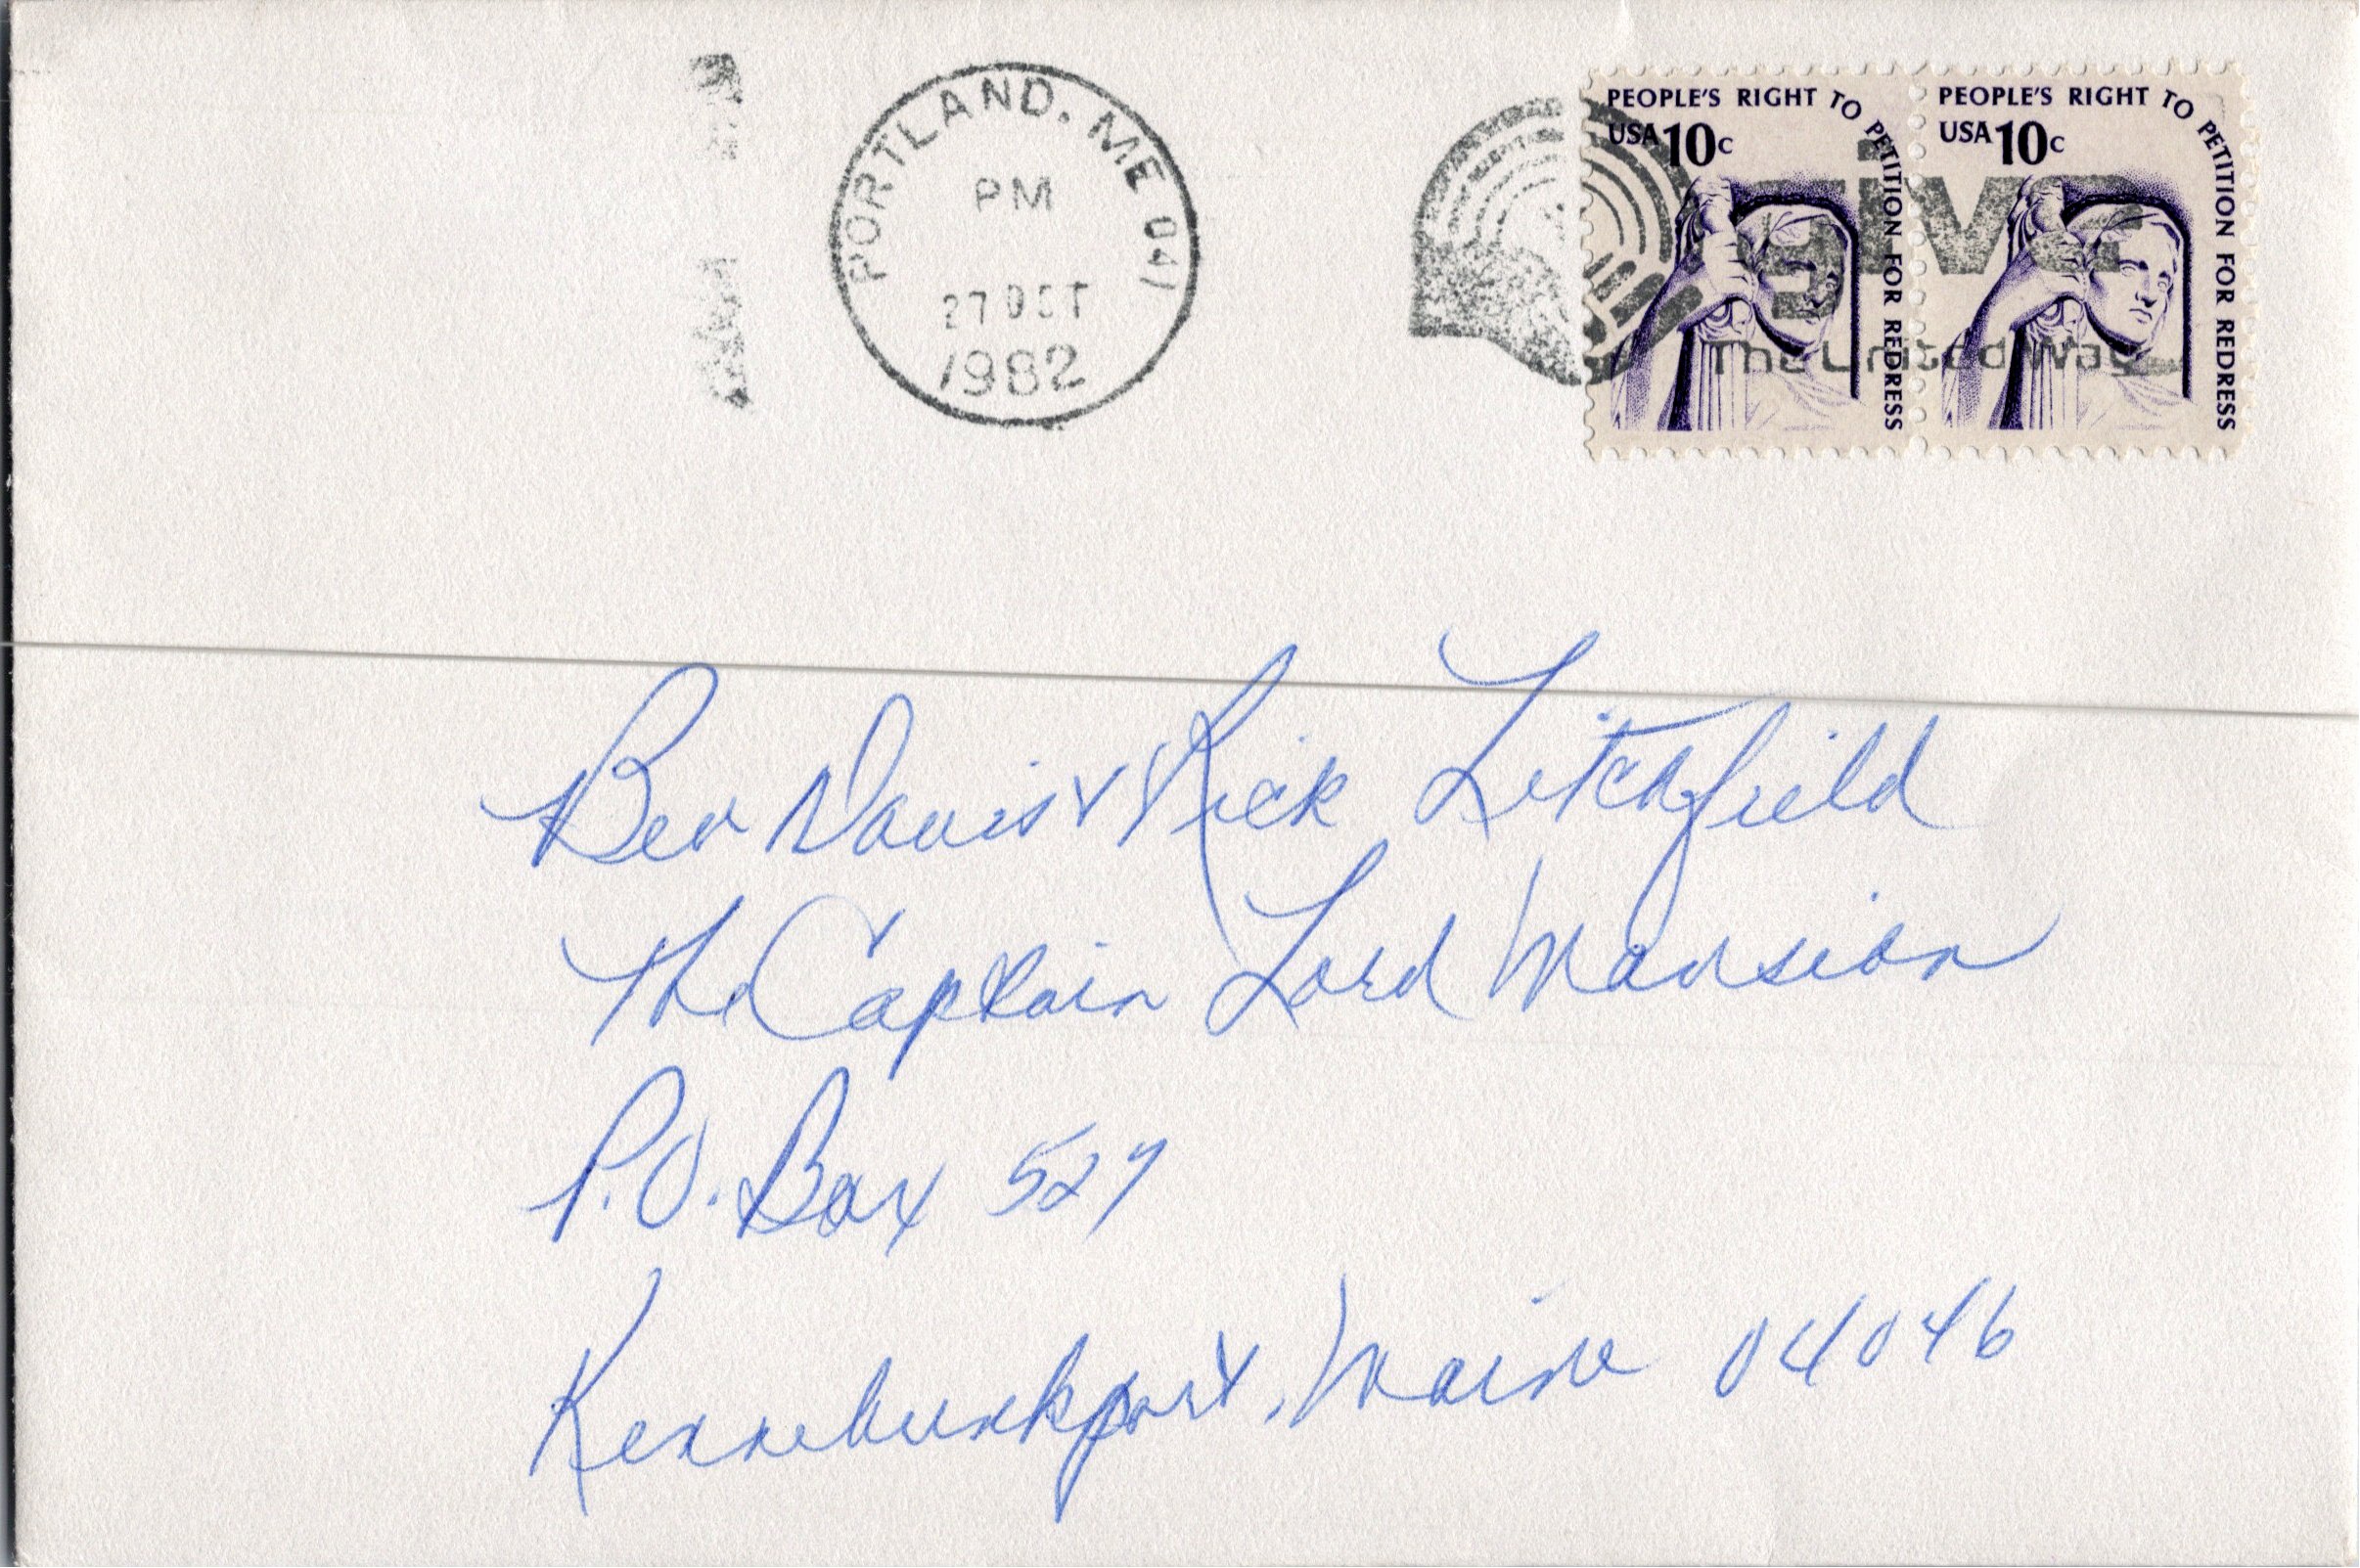 PORTLAND, ME 041
PM
27 OCT
1982
give
The United Way
PEOPLE'S RIGHT TO PETITION FOR REDRESS
USA 10c
PEOPLE'S RIGHT TO PETITION FOR REDRESS
USA 10c
Bev Davis & Rick Litchfield
The Captain Lord Mansion
P.O. Box 527
Kennebunkport, Maine 04046